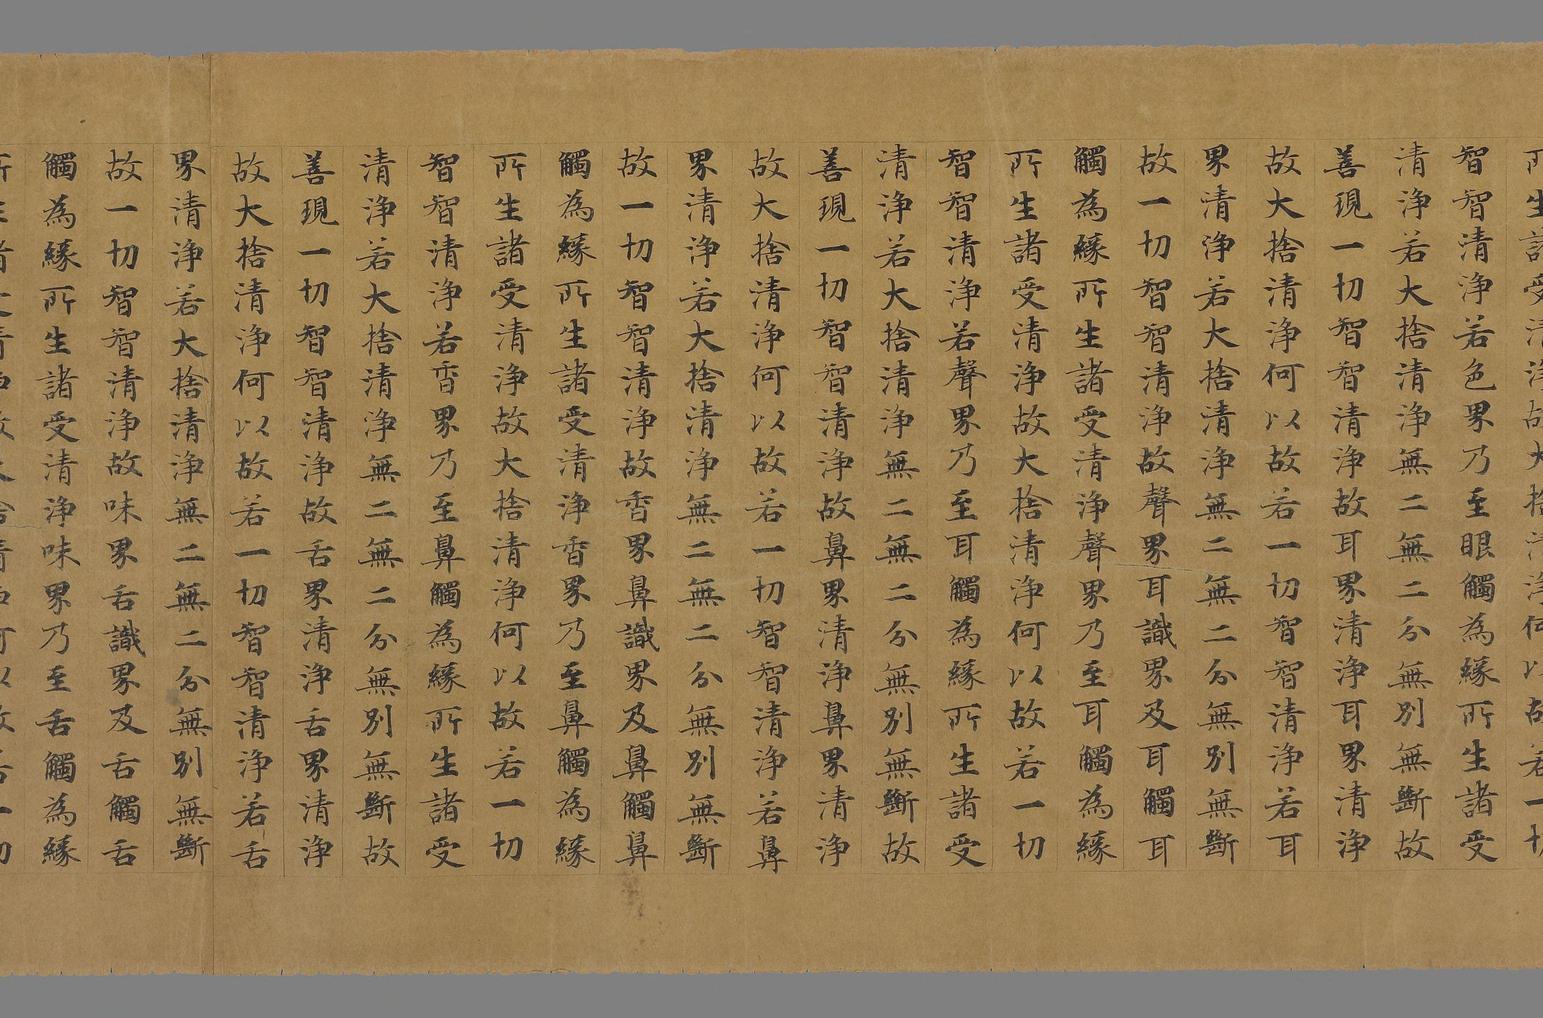 所生諸受清浄故大捨清浄何以故若一切
智智清浄若色界乃至眼觸為縁所生諸受
清浄若大捨清浄無二無二分無別無斷故
善現一切智智清浄故耳界清浄耳界清浄
故大捨清浄何以故若一切智智清浄若耳
界清浄若大捨清浄無二無二分無別無斷
故一切智智清浄故聲界耳識界及耳觸耳
觸為縁所生諸受清浄聲界乃至耳觸為縁
所生諸受清浄故大捨清浄何以故若一切
智智清浄若聲界乃至耳觸為縁所生諸受
清浄若大捨清浄無二無二分無別無斷故
善現一切智智清浄故鼻界清浄鼻界清浄
故大捨清浄何以故若一切智智清浄若鼻
界清浄若大捨清浄無二無二分無別無斷
故一切智智清浄故香界鼻識界及鼻觸鼻
觸為縁所生諸受清浄香界乃至鼻觸為縁
所生諸受清浄故大捨清浄何以故若一切
智智清浄若香界乃至鼻觸為縁所生諸受
清浄若大捨清浄無二無二分無別無斷故
善現一切智智清浄故舌界清浄舌界清浄
故大捨清浄何以故若一切智智清浄若舌
界清浄若大捨清浄無二無二分無別無斷
故一切智智清浄故味界舌識界及舌觸舌
觸為縁所生諸受清浄味界乃至舌觸為縁
所生諸受清浄故大捨清浄何以故若一切